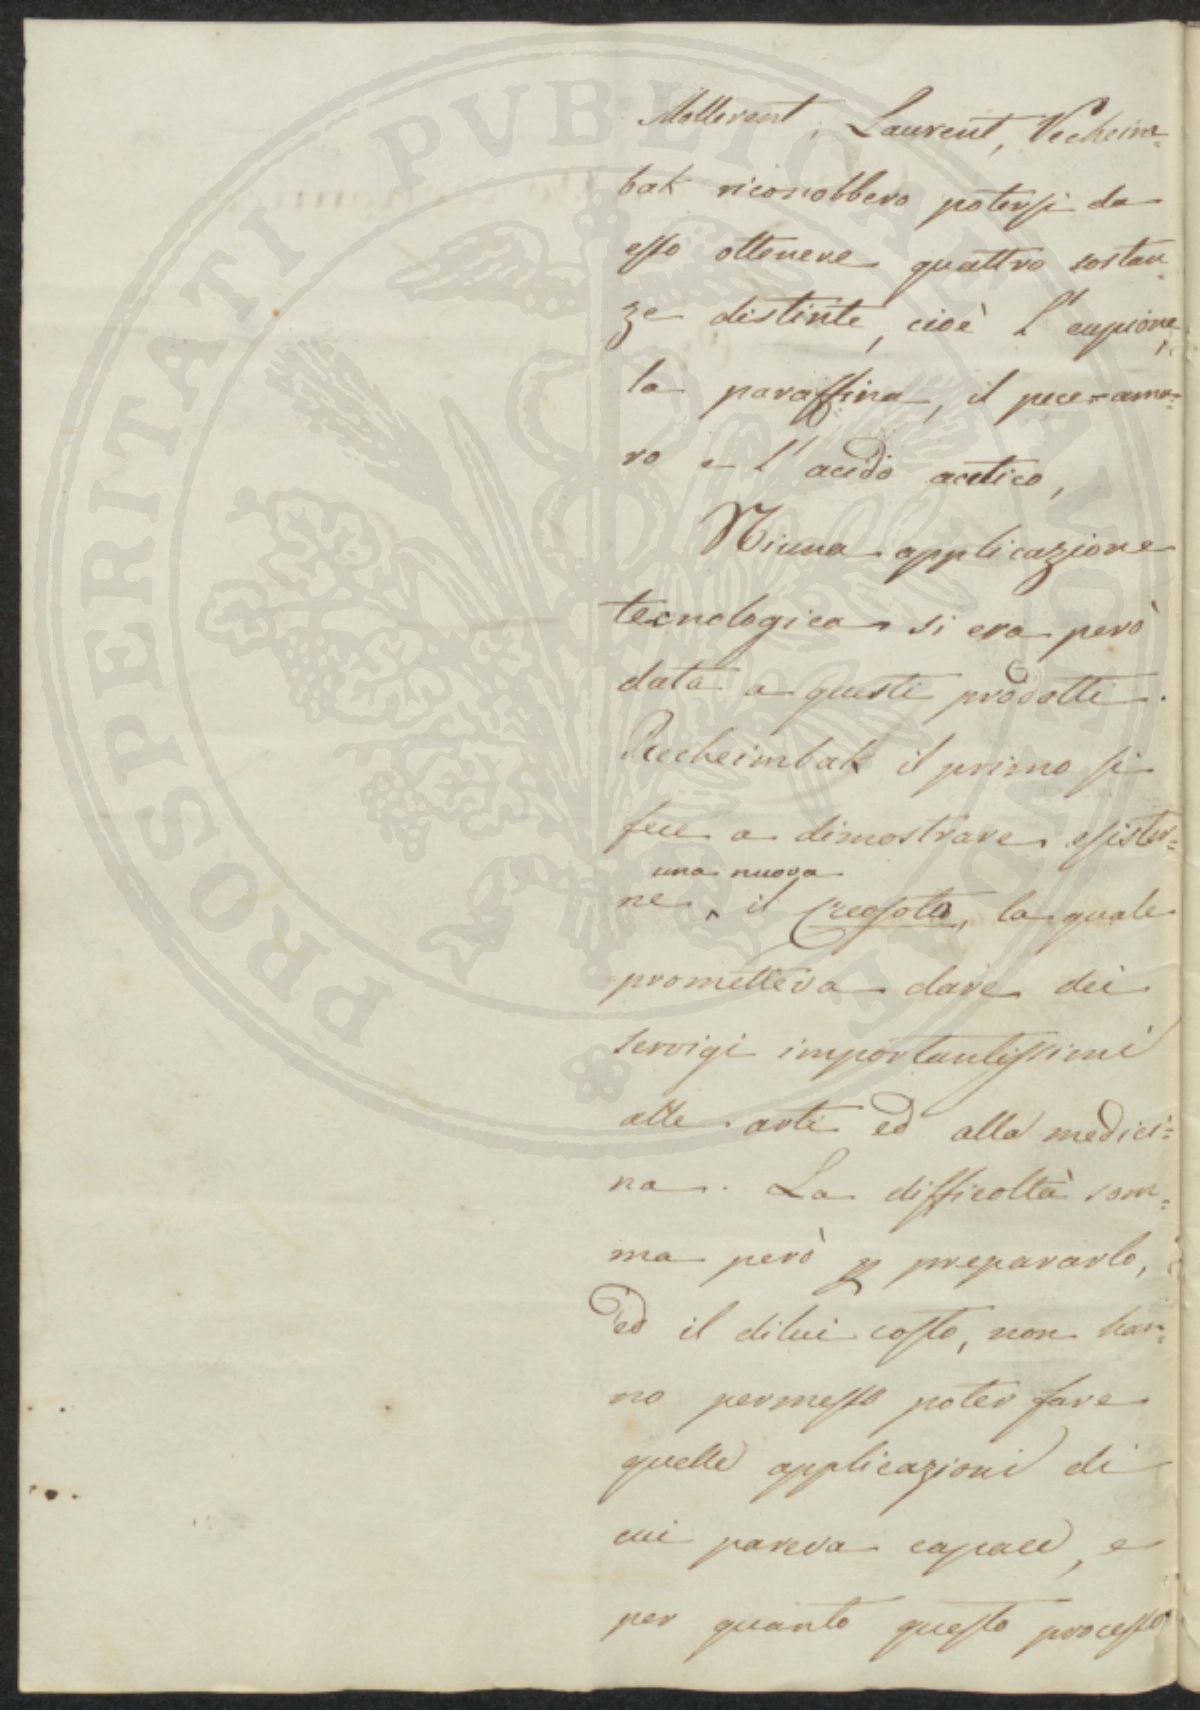 Mollerant, Laurent, Vecheim-
bak riconobbero potersi da
esso ottenere quattro sostan-
ze distinte, cioè l'eupione,
la paraffina, il pece-ama-
ro e l'acido acetico,
Niuna applicazione
tecnologica si era però
data a questi prodotti.
Recheimbak il primo si
fece a dimostrare esister-
una nuova
ne, il Creosoto, la quale
prometteva dare dei
servigi importantissimi
alle arti ed alla medici-
na. La difficoltà som-
ma però prepararlo,
ed il dilui costo, non han-
no permesso poter fare
quelle applicazioni di
cui pareva capace, e
per quanto questo processo
PROSPERITATI PVBLICAE